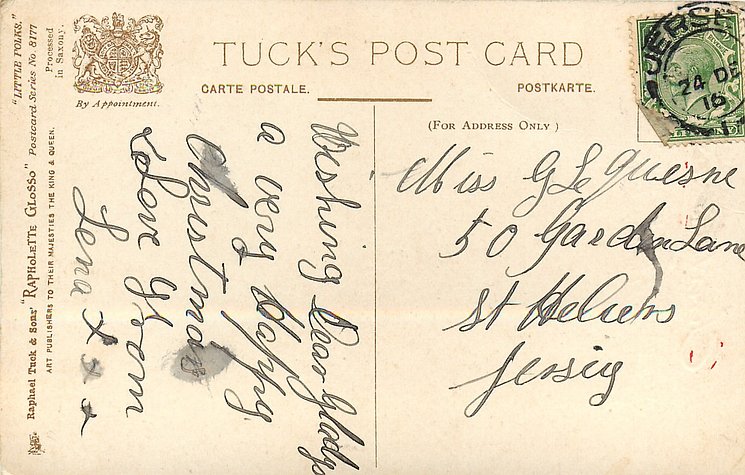 "LITTLE FOLKS."
Raphael Tuck & Sons' "RAPHOLETTE GLOSSO" Postcard Series No 8177
ART PUBLISHERS TO THEIR MAJESTIES THE KING & QUEEN.
Processed
in Saxony.
By Appointment.
TUCK'S POST CARD
CARTE POSTALE.
POSTKARTE.
(FOR ADDRESS ONLY)
JERSEY
24 DE
16
Wishing Dear Gladys
a very Happy
Christmas
Love from
Lena x x x
Miss G Le Quesne
50 Garden Lane
St Heliers
Jersey